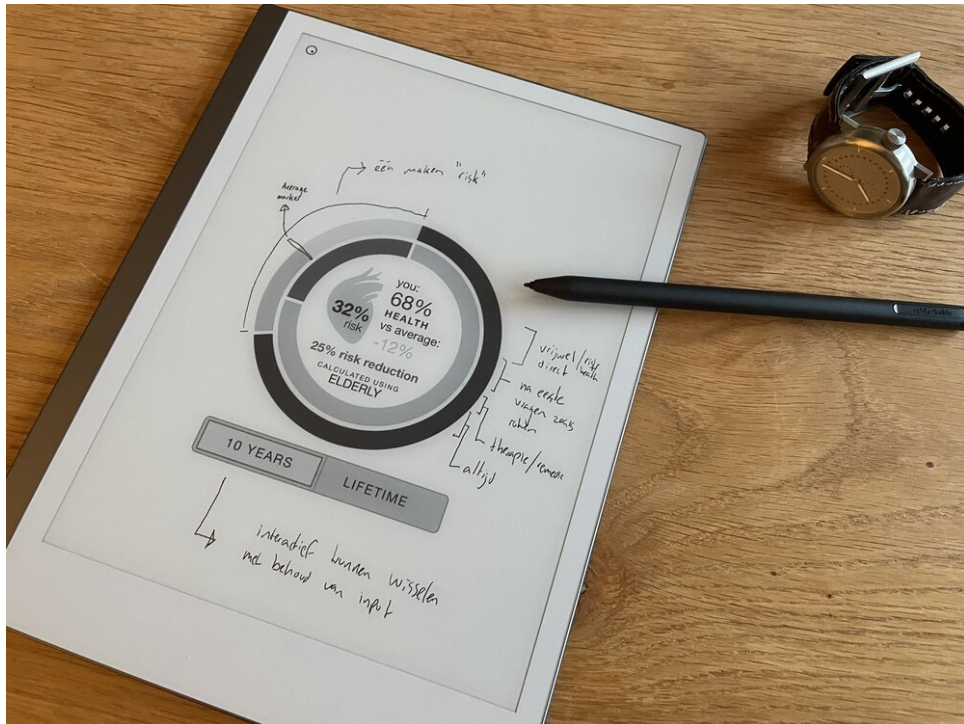 één maken "risk"
Average
marked
you:
68%
HEALTH
vs average:
-12%
32%
risk
25% risk reduction
CALCULATED USING
ELDERLY
10 YEARS
LIFETIME
vrijwel/risk
direct health
na eerste
vragen zoals
roken
therapie/remedie
altijd
interactief kunnen wisselen
met behoud van input
reMarkable